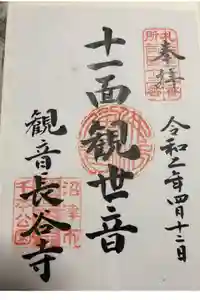 奉拝
令和二年四月十二日
十一面観世音
観音長谷寺
沼津市
千本公園